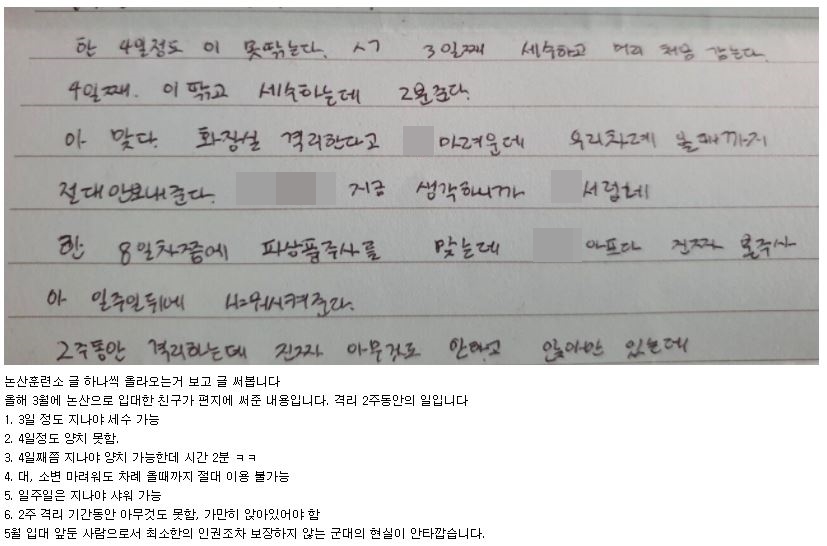 한 4일정도 이 못딲는다. 3일째 세수하고 머리 처음 감는다.
4일째. 이 딲고 세수하는데 2분준다.
아 맞다. 화장실 격리한다고 마려운데 우리차례 올때까지
절대안보내준다. 지금 생각하니까 서럽네
한 8일차쯤에 파상풍주사를 맞는데 아프다 진짜 불주사
아 일주일뒤에 샤워시켜준다.
2주동안 격리하는데 진짜 아무것도 안하고 앉아만 있는데
논산훈련소 글 하나씩 올라오는거 보고 글 써봅니다
올해 3월에 논산으로 입대한 친구가 편지에 써준 내용입니다. 격리 2주동안의 일입니다
1. 3일 정도 지나야 세수 가능
2. 4일정도 양치 못함.
3. 4일째쯤 지나야 양치 가능한데 시간 2분 ㅋㅋ
4. 대, 소변 마려워도 차례 올때까지 절대 이용 불가능
5. 일주일은 지나야 샤워 가능
6. 2주 격리 기간동안 아무것도 못함, 가만히 앉아있어야 함
5월 입대 앞둔 사람으로서 최소한의 인권조차 보장하지 않는 군대의 현실이 안타깝습니다.